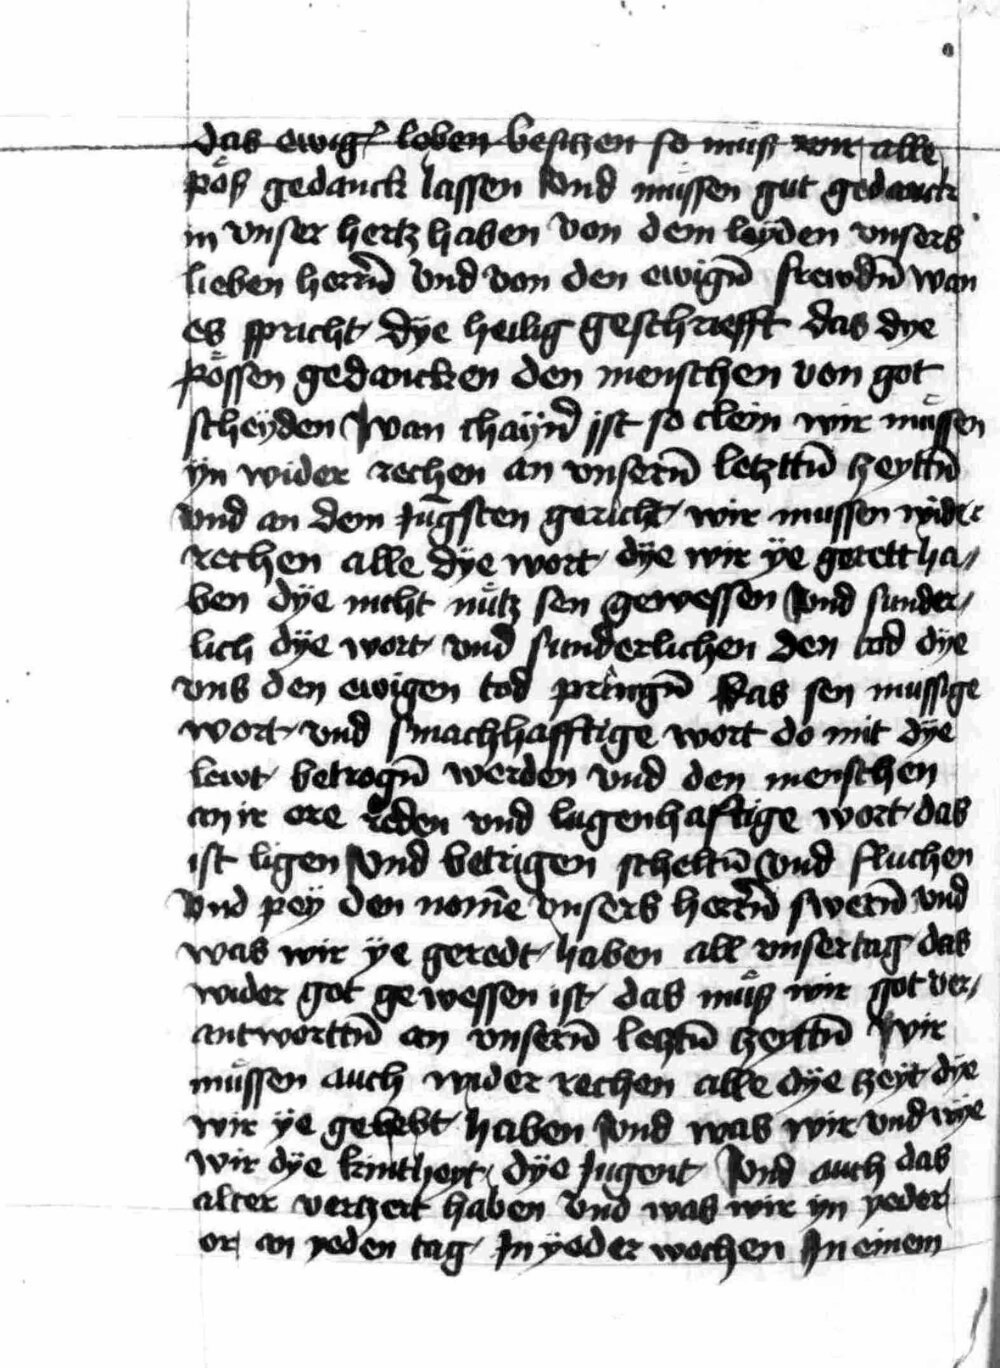 das ewig leben besitzen so müß wir alle
pöß gedanck lassen Vnd müssen gut gedanck
in vnser hertz haben von dem leyden vnsers
lieben herrn̄ vnd von den ewign̄ frewdn̄ wan
es spricht dÿe heilig geschriefft das dye
pössen gedancken den menschen von got
scheyden Wan chayn̄ ist so clein wir müssen
yn wider rechen an vnsern̄ letzttn̄ zeyttn̄
vnd an dem Jūgsten gericht wir mussen wider
rechen alle dÿe wort dÿe wir ÿe gerett ha/
ben dÿe nicht nütz sen gewessen Vnd sunder/
lich dÿe wort vnd sunderlichen den tod dÿe
vns den ewigen tod pringn̄ Das sen mussige
wort vnd smachhafftige wort do mit dÿe
lewt betrogn̄ werden vnd den menschen
an ir ere reden vnd lugenhaftige wort das
ist ligen Vnd betrigen scheltn̄ Vnd fluchen
Vnd pey den nom̄e vnsers herrn̄ swern̄ vnd
was wir ÿe geredt haben all vnser tag das
wider got gewessen ist das müß wir got ver/
antworttn̄ an vnsern̄ letztn̄ zeyttn̄ Wir
müssen auch wider rechen alle dÿe zeyt dÿe
wir ÿe gelebt haben Vnd was wir vnd wye
wir dÿe kintheyt dÿe Jugent Vnd auch das
alter vertzert haben Vnd was wir yn yeder
or an yeden tag In ÿeder wochen In einem